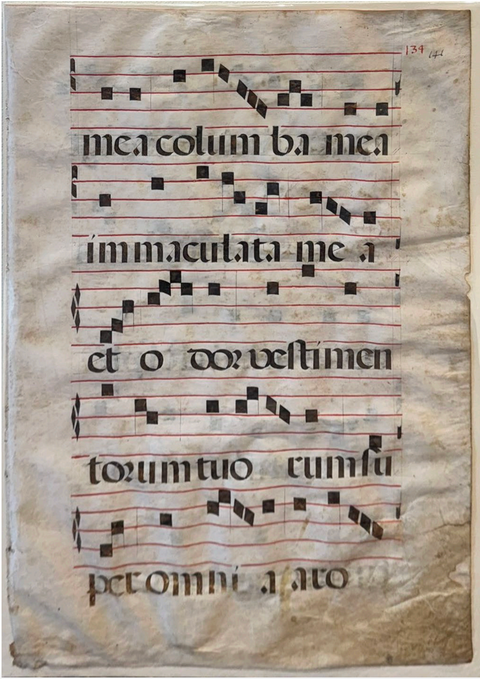 134 141
mea colum ba mea
immaculata me a
et o dor vestimen
torum tuo rum su
per omni a aro